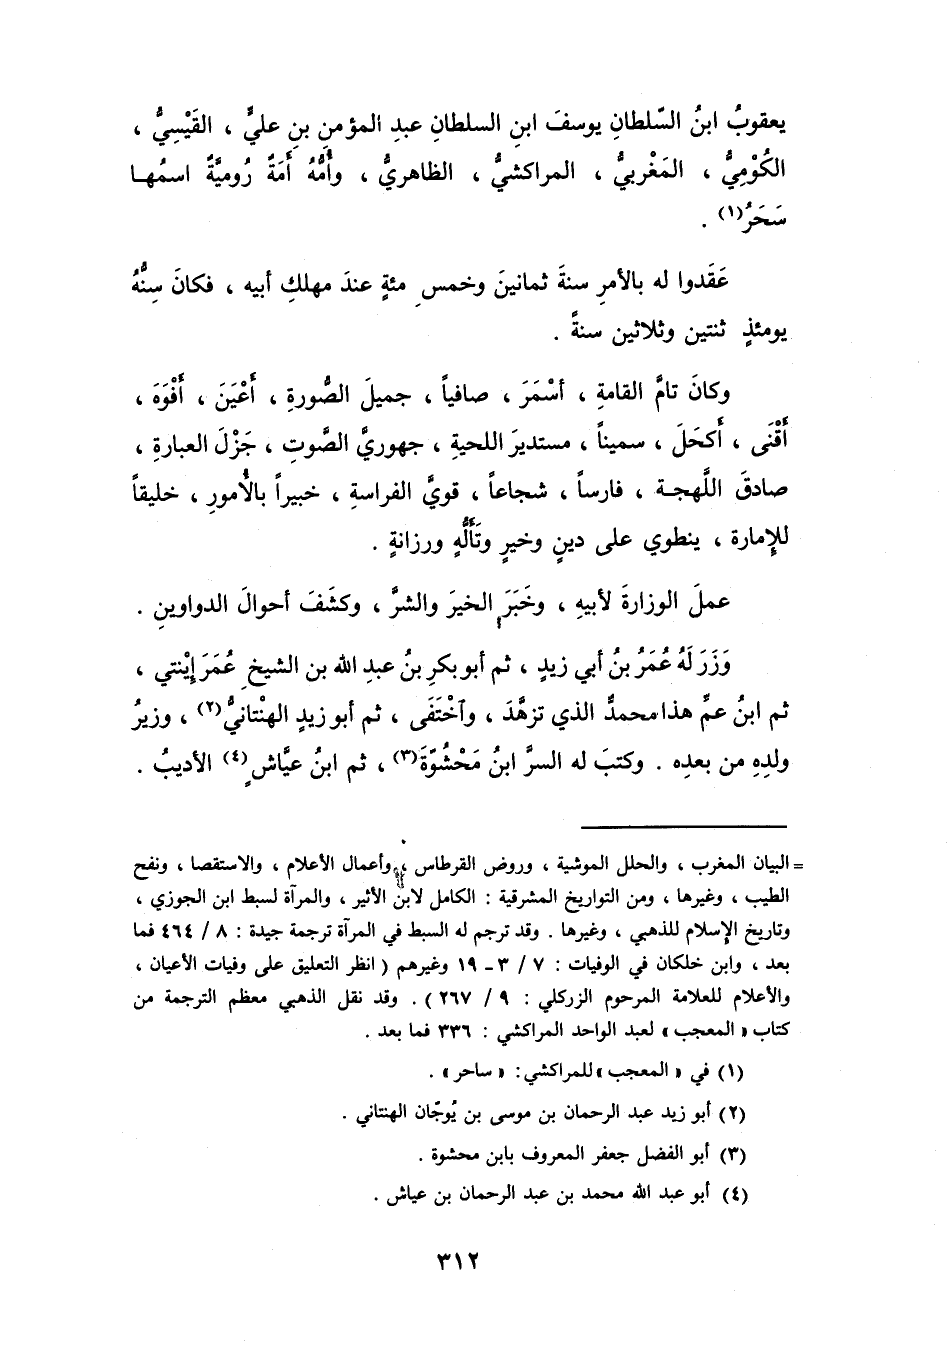 يعقوبُ ابنُ السّلطانِ يوسفَ ابنِ السلطانِ عبدِ المؤمنِ بنِ عليٍّ ، القَيْسِيُّ ،
الكُوْمِيُّ ، المَغْربيُّ ، المراكشيُّ ، الظاهريُّ ، وأُمُّهُ أَمَةٌ رُوميَّةٌ اسمُها
سَحَرُ(١) .
عَقَدوا له بالأمرِ سنةَ ثمانينَ وخمسِ مئةٍ عندَ مهلكِ أبيه ، فكانَ سِنُّهُ
يومئذٍ ثنتين وثلاثين سنةً .
وكانَ تامَّ القامةِ ، أسْمَرَ ، صافياً ، جميلَ الصُّورةِ ، أَعْيَنَ ، أَفْوَهَ ،
أَقْنَى ، أَكحَلَ ، سميناً ، مستديرَ اللحيةِ ، جهوريَّ الصَّوتِ ، جَزْلَ العبارةِ ،
صادقَ اللَّهجةِ ، فارساً ، شجاعاً ، قويَّ الفراسةِ ، خبيراً بالأُمورِ ، خليقاً
للإِمارة ، ينطوي على دينٍ وخيرٍ وتَأَلُّهٍ ورزانةٍ .
عملَ الوزارةَ لأبيهِ ، وخَبَرَ الخيرَ والشرَّ ، وكشَفَ أحوالَ الدواوينِ .
وَزَرَ لَهُ عُمَرُ بنُ أبي زيدٍ ، ثم أبو بكرِ بنُ عبدِ الله بن الشيخِ عُمَرَ إِيْنتي ،
ثم ابنُ عمِّ هذا محمدٌ الذي تزهَّدَ ، وٱخْتَفَى ، ثم أبو زيدٍ الهنْتانيُّ(٢) ، وزيرُ
ولدِهِ من بعدِه . وكتبَ له السرَّ ابنُ مَحْشُوّةَ(٣) ، ثم ابنُ عيَّاشٍ(٤) الأديبُ .
= البيان المغرب ، والحلل الموشية ، وروض القرطاس ، وأعمال الأعلام ، والاستقصا ، ونفح
الطيب ، وغيرها ، ومن التواريخ المشرقية : الكامل لابن الأثير ، والمرآة لسبط ابن الجوزي ،
وتاريخ الإسلام للذهبي ، وغيرها . وقد ترجم له السبط في المرآة ترجمة جيدة : ٨ / ٤٦٤ فما
بعد ، وابن خلكان في الوفيات : ٧ / ٣ - ١٩ وغيرهم ( انظر التعليق على وفيات الأعيان ،
والأعلام للعلامة المرحوم الزركلي : ٩ / ٢٦٧ ) . وقد نقل الذهبي معظم الترجمة من
كتاب « المعجب » لعبد الواحد المراكشي : ٣٣٦ فما بعد .
(١) في « المعجب » للمراكشي : « ساحر » .
(٢) أبو زيد عبد الرحمان بن موسى بن يُوجّان الهنتاني .
(٣) أبو الفضل جعفر المعروف بابن محشوة .
(٤) أبو عبد الله محمد بن عبد الرحمان بن عياش .
٣١٢